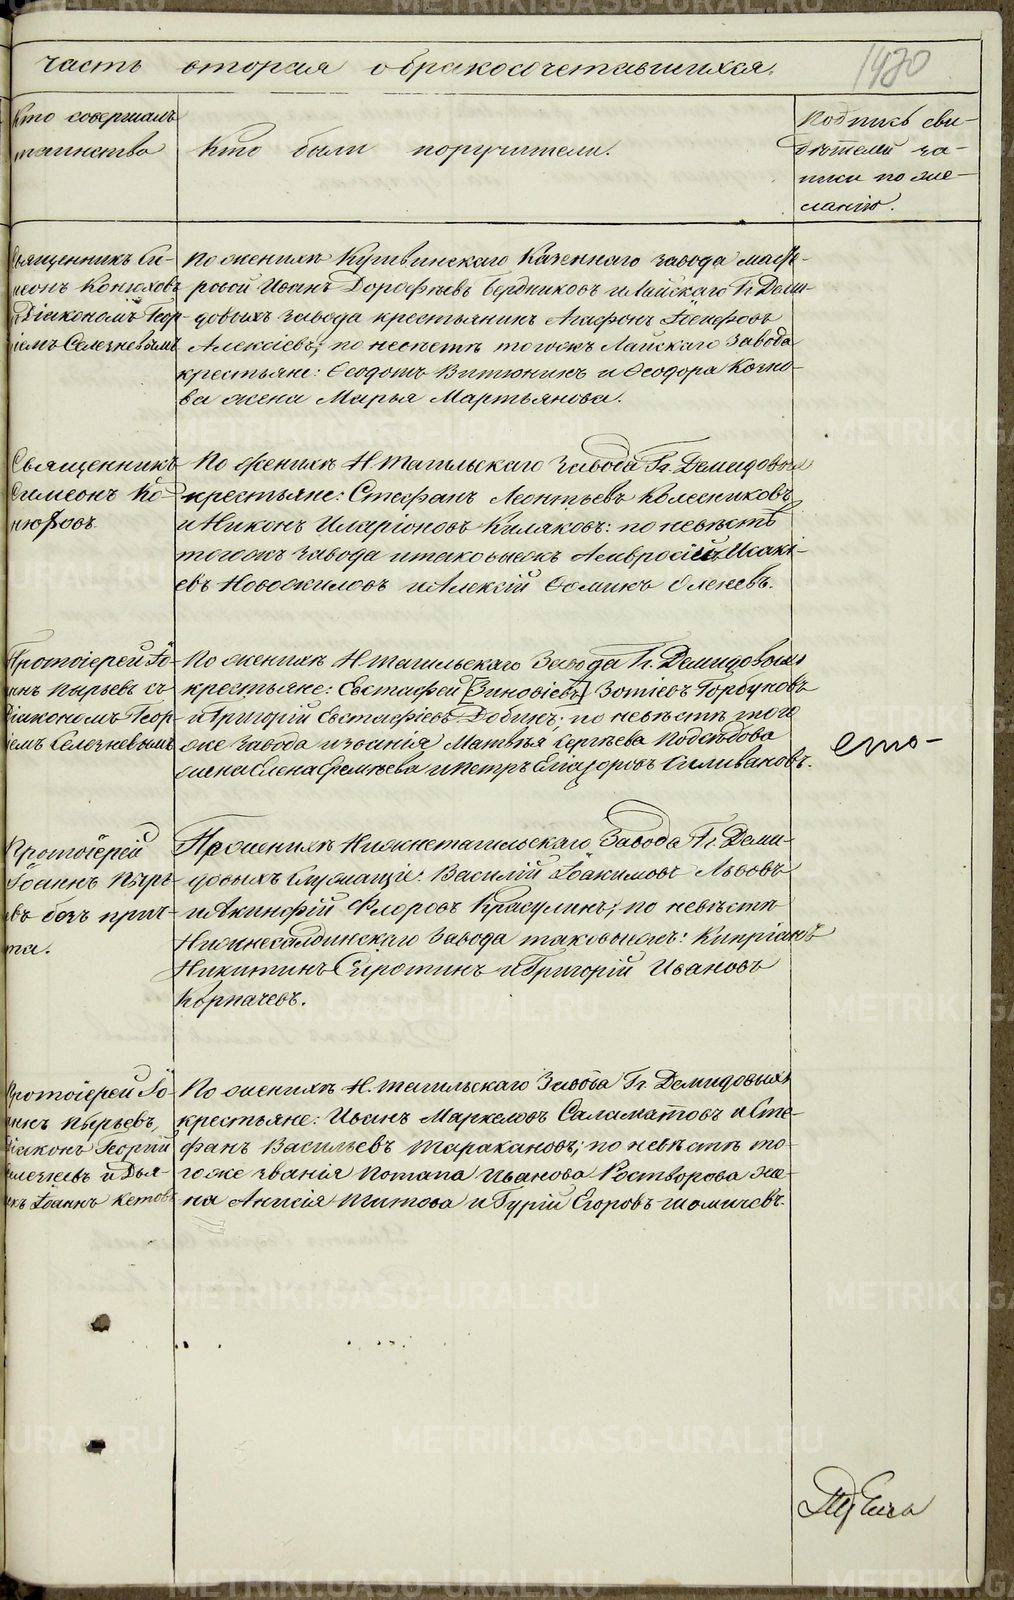 METRIKI.GASO-URAL.RU
часть вторая о бракосочетавшихся.
1420
Кто совершалъ
таинства
Кто были поручители.
Подпись сви-
дѣтелей за-
писи по же-
ланію.
Священникъ Си-
меонъ Конюховъ
съ Діакономъ Геор-
гіемъ Селезневымъ
По женихѣ Кушвинскаго Казеннаго завода масте-
ровой Иванъ Дорофѣевъ Бердниковъ и Лайскаго Гг. Деми-
довыхъ завода крестьянинъ Агафонъ
Алексѣевъ; по невѣстѣ тогожъ Лайскаго завода
крестьяне: Ѳеодотъ Витюнинъ и Ѳеодора Козло-
ва жена Марья Мартьянова.
Священникъ
Симеонъ Ко-
нюховъ
По женихѣ Н.Тагильскаго Завода Гг. Демидовыхъ
крестьяне: Стефанъ Леонтьевъ Колесниковъ
и Никонъ Иларіоновъ Киляковъ: по невѣстѣ
тогожъ завода и таковыежъ Амвросій Исакі-
евъ Новожиловъ и Алексій Ѳоминъ Оленевъ.
Протоіерей Іо-
аннъ Пырьевъ съ
Діакономъ Геор-
гіемъ Селезневымъ
По женихѣ Н.Тагильскаго Завода Гг. Демидовыхъ
крестьяне: Евстафей [Зиновіевъ] Зотіевъ Горбуновъ
и Григорій Евстафіевъ Добинъ; по невѣстѣ того
же завода и званія Матвѣя Сергѣева Подсѣдова
жена Елена Еремѣева и Петръ Еліазоровъ Силивановъ.
его-
Протоіерей
Іоаннъ Пырь-
евъ безъ прич-
та.
По женихѣ Нижнетагильскаго Завода Гг. Деми-
довыхъ служащіе: Василій Іоакимовъ Львовъ
и Акинфій Флоровъ Красулинъ; по невѣстѣ
Нижнесалдинскаго Завода таковыежъ: Кипріанъ
Никитинъ Сиротинъ и Григорій Ивановъ
Корпачевъ.
Протоіерей Іо-
аннъ Пырьевъ,
Діаконъ Георгій
Селезневъ и Дья-
чекъ Іоаннъ Кетовъ
По женихѣ Н.Тагильскаго Завода Гг. Демидовыхъ
крестьяне: Иванъ Маркеловъ Саламатовъ и Сте-
фанъ Васильевъ Таракановъ; по невѣстѣ то-
гоже званія Потапа Иванова Растворова же-
на Анисія Титова и Гурій Егоровъ Шомичевъ.